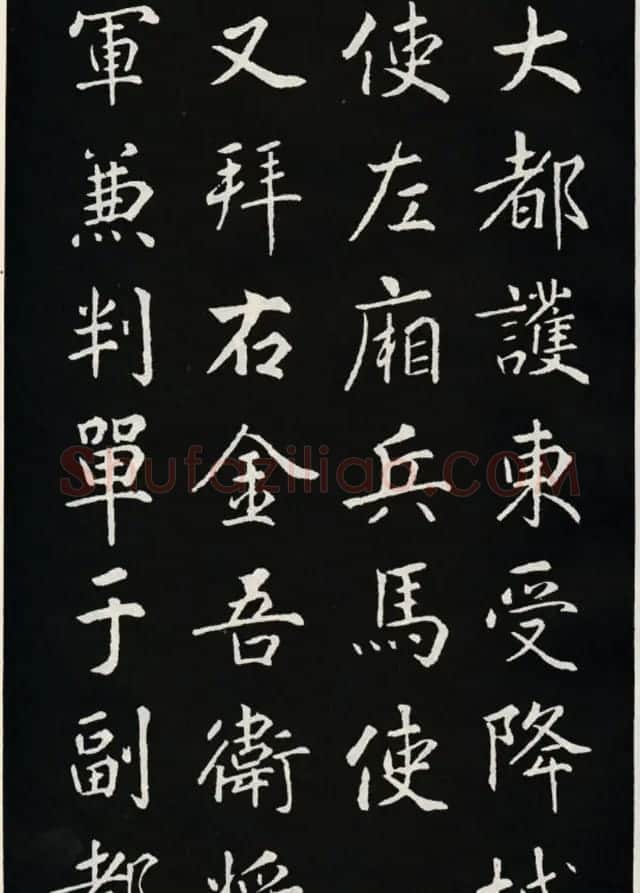 大都護東受降城
使左廂兵馬使
又拜右金吾衛將
軍兼判單于副都
Shufaziliao.COM